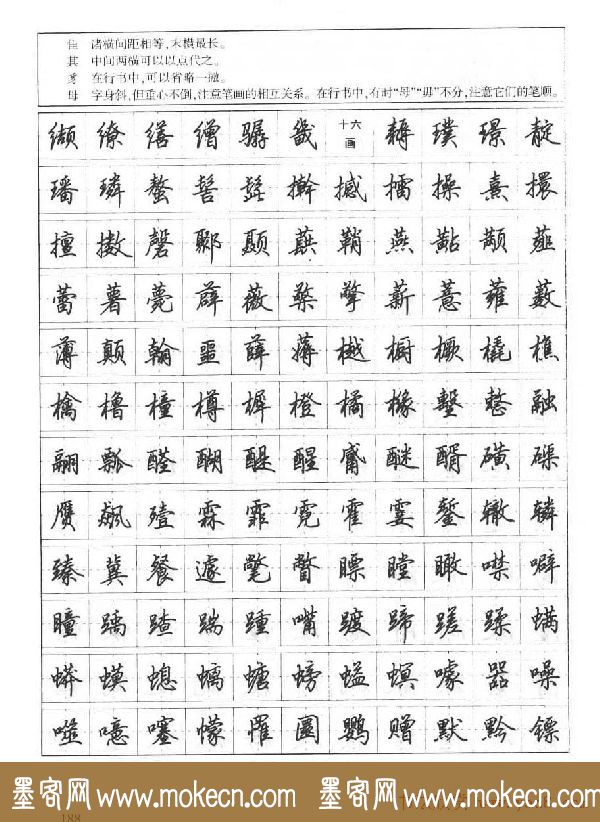 佳 诸横间距相等,末横最长。
其 中间两横可以以点代之。
勇 在行书中,可以省略一撇。
母 字身斜,但重心不倒,注意笔画的相互关系。在行书中,有时“母”“毋”不分,注意它们的笔顺。
缬 缭 缮 缯 骣 畿 十六画 耨 璞 璟 靛
璠 璘 螯 髻 髭 擀 撼 擂 操 熹 擐
擅 擞 磬 鄹 颞 蕻 鞘 燕 黇 颟 薤
蕾 薯 薨 薜 薇 檠 擎 薪 薏 蕹 薮
薄 颠 翰 噩 薛 薅 樾 橱 橛 橇 樵
檎 橹 橦 樽 樨 橙 橘 橼 墼 整 融
翮 瓢 醛 醐 醍 醒 醚 醑 磺 磲
赝 飙 殪 霖 霏 霓 霍 霎 錾 辙 辚
臻 冀 餐 遽 氅 瞥 瞟 瞠 瞰 噤 噼
瞳 踽 踏 踹 踵 嘴 踱 蹄 蹉 蹂 螨
蟒 蟆 螅 螭 螗 螃 螠 螟 噱 器 噪
噬 噫 噻 幪 罹 圜 鹦 赠 默 黔 镖
墨客网 www.mokecn.com 墨客网 www.mokecn.com
188